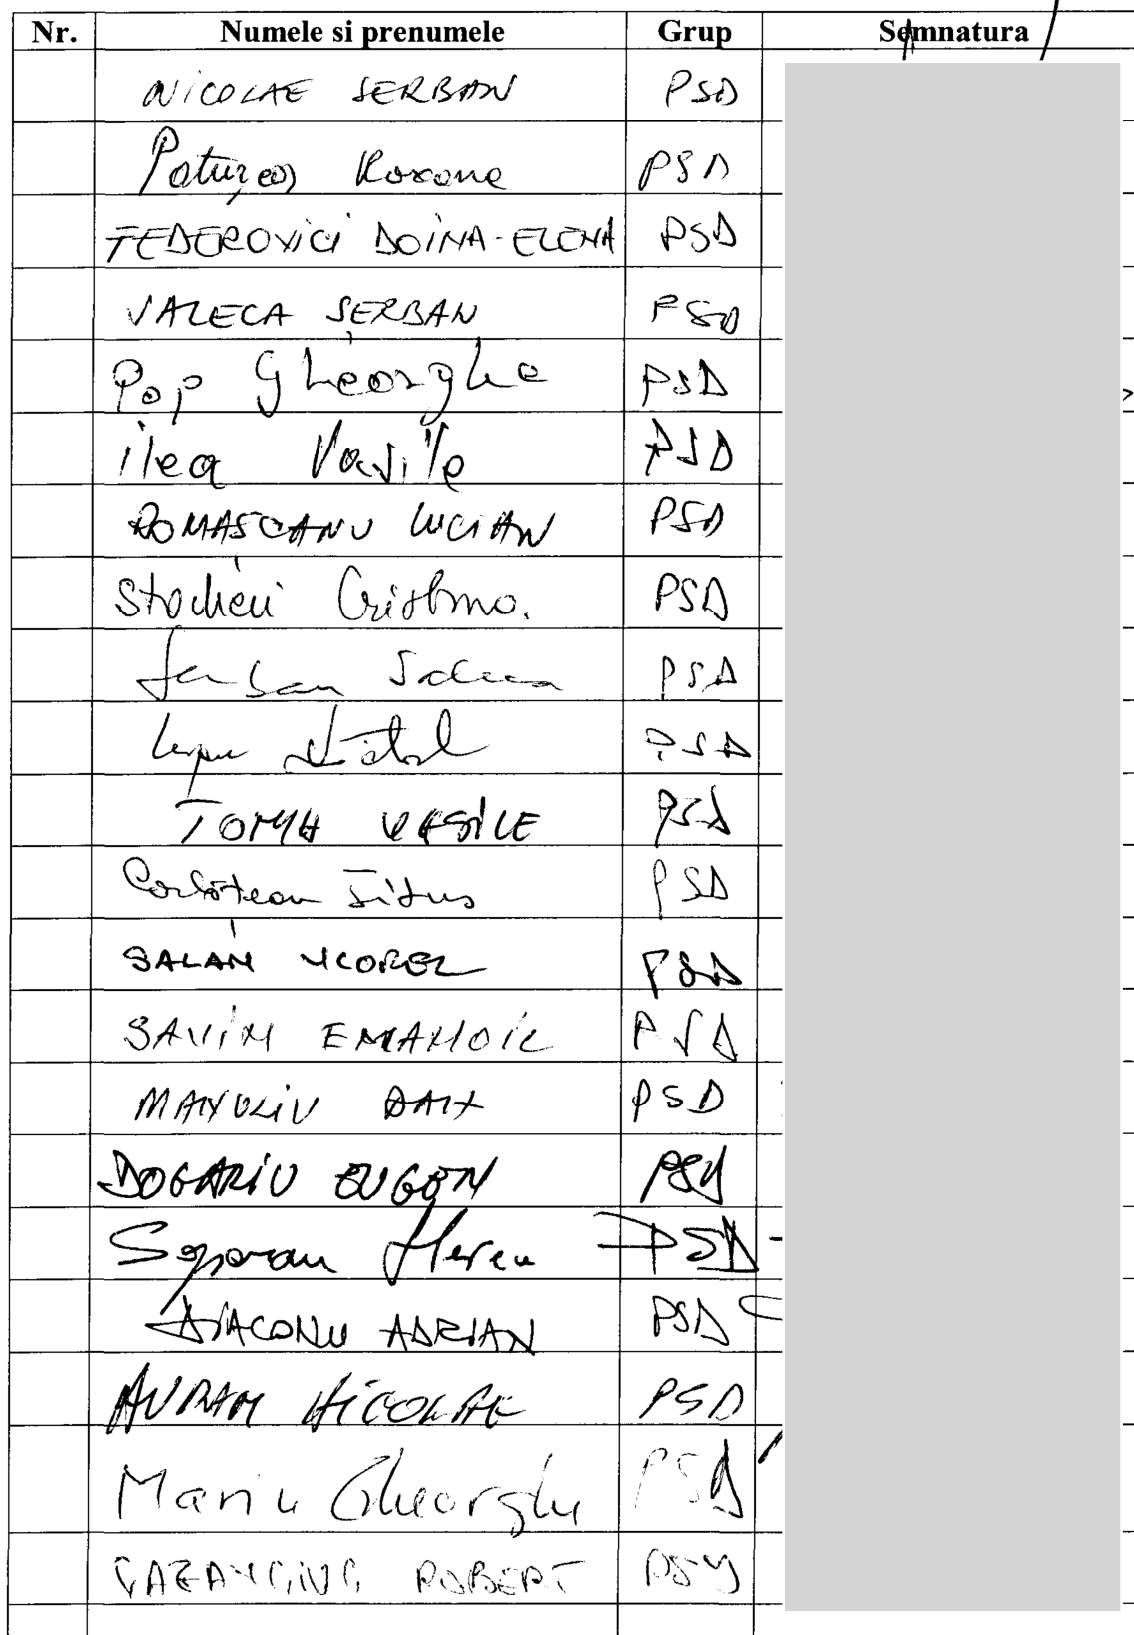 Nr. Numele si prenumele Grup Semnatura
NICOLAE SERBAN PSD
Paturcă Roxana PSD
FEDEROVICI DOINA-ELENA PSD
VALECA SERBAN PSD
Pop Gheorghe PSD
ilea Vasile PSD
ROMASCANU LUCIAN PSD
Stocheci Cristina. PSD
PSD
Lupu Vitol PSD
TOMA VASILE PSD
Corlătean Titus PSD
SALAN VIOREL PSD
SAVIN EMANOIL PSD
MANOLIU DAN PSD
DOGARIU EUGEN PSD
PSD
DIACONU ADRIAN PSD
AVRAM NICOLAE PSD
Marin Gheorghe PSD
CAZANCIUC ROBERT PSD